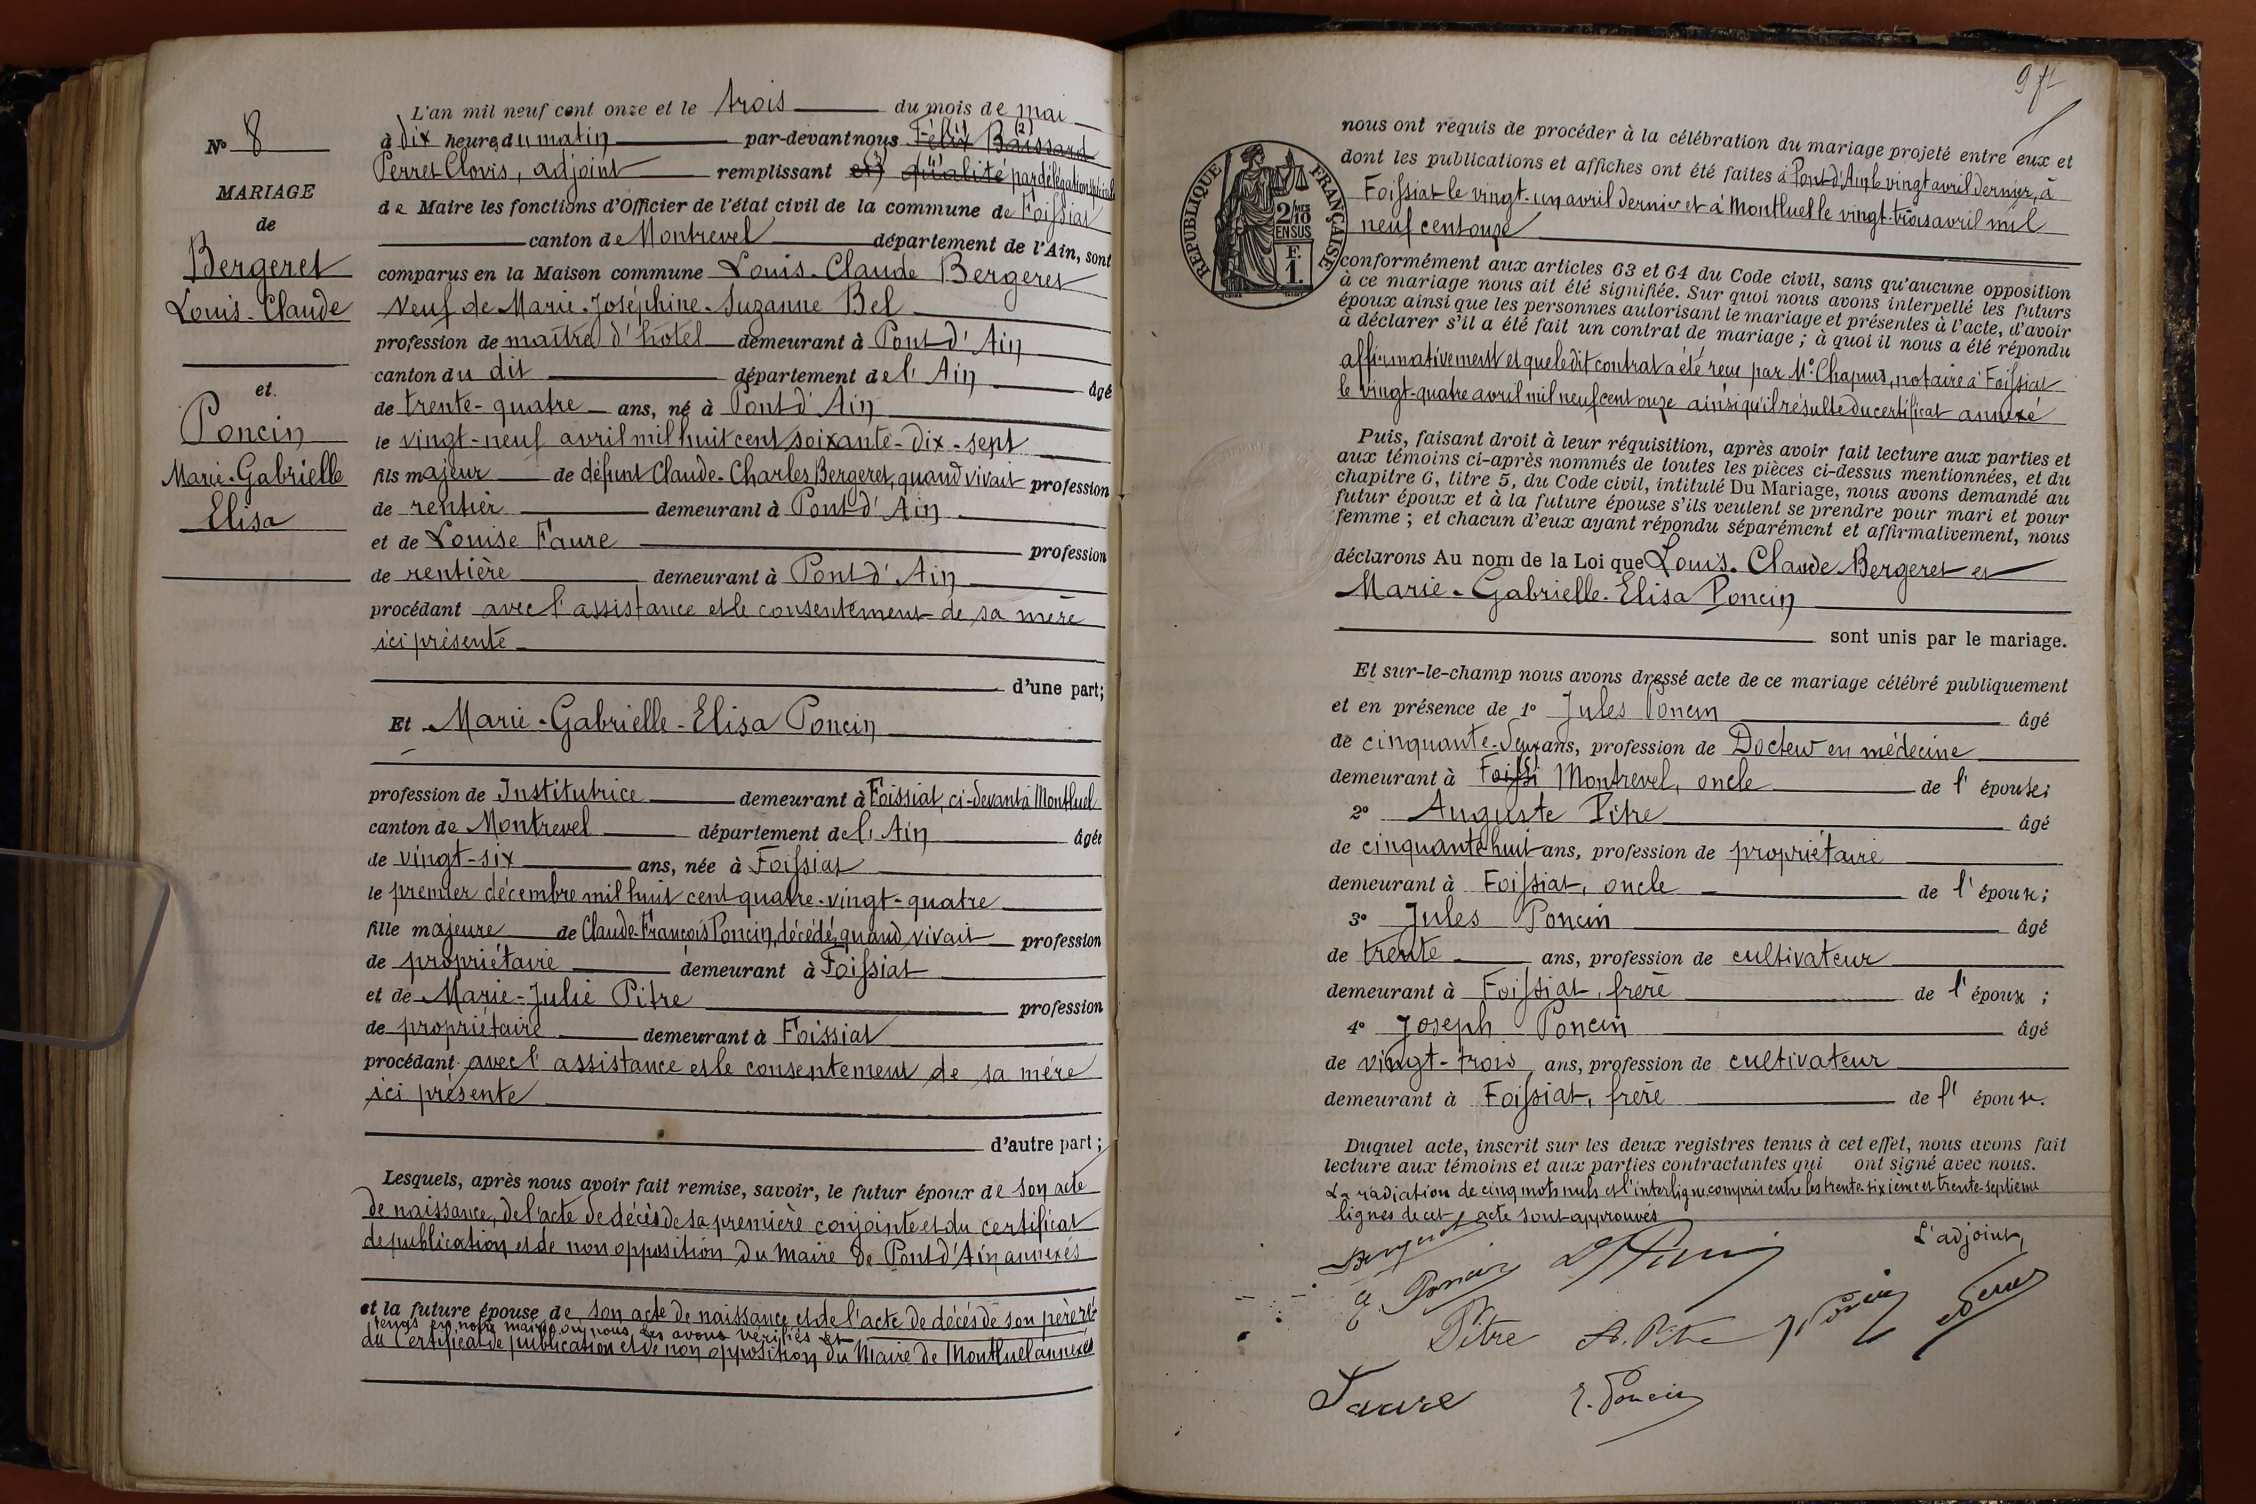 N° 8
MARIAGE
de
Bergeret
Louis-Claude
et
Poncin
Marie-Gabrielle
Elisa
L'an mil neuf cent onze et le trois du mois de mai
à dix heures du matin par-devant nous Félix Baissard (2)
Perret Clovis, adjoint remplissant en qualité par délégation spéciale
de Maire les fonctions d'Officier de l'état civil de la commune de Foissiat
canton de Montrevel département de l'Ain, sont
comparus en la Maison commune Louis-Claude Bergeret
Veuf de Marie-Joséphine-Suzanne Bel
profession de maître d'hôtel demeurant à Pont d'Ain
canton du dit département de l'Ain âgé
de trente-quatre ans, né à Pont d'Ain
le vingt-neuf avril mil huit cent soixante-dix-sept
fils majeur de défunt Claude-Charles Bergeret, quand vivait profession
de rentier demeurant à Pont d'Ain
et de Louise Faure profession
de rentière demeurant à Pont d'Ain
procédant avec l'assistance et le consentement de sa mère
ici présente
d'une part;
Et Marie-Gabrielle-Elisa Poncin
profession de Institutrice demeurant à Foissiat, ci-devant à Montluel
canton de Montrevel département de l'Ain âgée
de vingt-six ans, née à Foissiat
le premier décembre mil huit cent quatre-vingt-quatre
fille majeure de Claude-François Poncin, décédé, quand vivait profession
de propriétaire demeurant à Foissiat
et de Marie-Julie Pitre profession
de propriétaire demeurant à Foissiat
procédant avec l'assistance et le consentement de sa mère
ici présente
d'autre part;
Lesquels, après nous avoir fait remise, savoir, le futur époux de son acte
de naissance, de l'acte de décès de sa première conjointe et du certificat
de publication et de non opposition du Maire de Pont d'Ain annexés
et la future épouse de son acte de naissance et de l'acte de décès de son père ré-
tenus en notre mairie où nous les avons vérifiés et
du Certificat de publication et de non opposition du Maire de Montluel annexés
9
nous ont requis de procéder à la célébration du mariage projeté entre eux et
dont les publications et affiches ont été faites à Pont d'Ain le vingt avril dernier, à
Foissiat le vingt-un avril dernier et à Montluel le vingt-trois avril mil
neuf cent onze
RÉPUBLIQUE FRANÇAISE
2/10 EN SUS
F. 1.
conformément aux articles 63 et 64 du Code civil, sans qu'aucune opposition
à ce mariage nous ait été signifiée. Sur quoi nous avons interpellé les futurs
époux ainsi que les personnes autorisant le mariage et présentes à l'acte, d'avoir
à déclarer s'il a été fait un contrat de mariage; à quoi il nous a été répondu
affirmativement et que le dit contrat a été reçu par Me Chapuis, notaire à Foissiat
le vingt-quatre avril mil neuf cent onze ainsi qu'il résulte du certificat annexé
Puis, faisant droit à leur réquisition, après avoir fait lecture aux parties et
aux témoins ci-après nommés de toutes les pièces ci-dessus mentionnées, et du
chapitre 6, titre 5, du Code civil, intitulé Du Mariage, nous avons demandé au
futur époux et à la future épouse s'ils veulent se prendre pour mari et pour
femme; et chacun d'eux ayant répondu séparément et affirmativement, nous
déclarons Au nom de la Loi que Louis-Claude Bergeret et
Marie-Gabrielle-Elisa Poncin
sont unis par le mariage.
Et sur-le-champ nous avons dressé acte de ce mariage célébré publiquement
et en présence de 1° Jules Poncin âgé
de cinquante-deux ans, profession de Docteur en médecine
demeurant à Foissi Montrevel, oncle de l'épouse;
2° Auguste Pitre âgé
de cinquante huit ans, profession de propriétaire
demeurant à Foissiat, oncle de l'épouse;
3° Jules Poncin âgé
de trente ans, profession de cultivateur
demeurant à Foissiat, frère de l'épouse;
4° Joseph Poncin âgé
de vingt-trois ans, profession de cultivateur
demeurant à Foissiat, frère de l'épouse.
Duquel acte, inscrit sur les deux registres tenus à cet effet, nous avons fait
lecture aux témoins et aux parties contractantes qui ont signé avec nous.
La radiation de cinq mots nuls et l'interligne compris entre les trente-sixième et trente-septième
lignes de cet acte sont approuvés
L'adjoint,
Bergeret
E Poncin
Pitre A. Pitre J Poncin
Faure